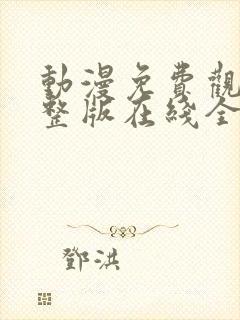 動漫免費觀
整版在綫全
鄧洪